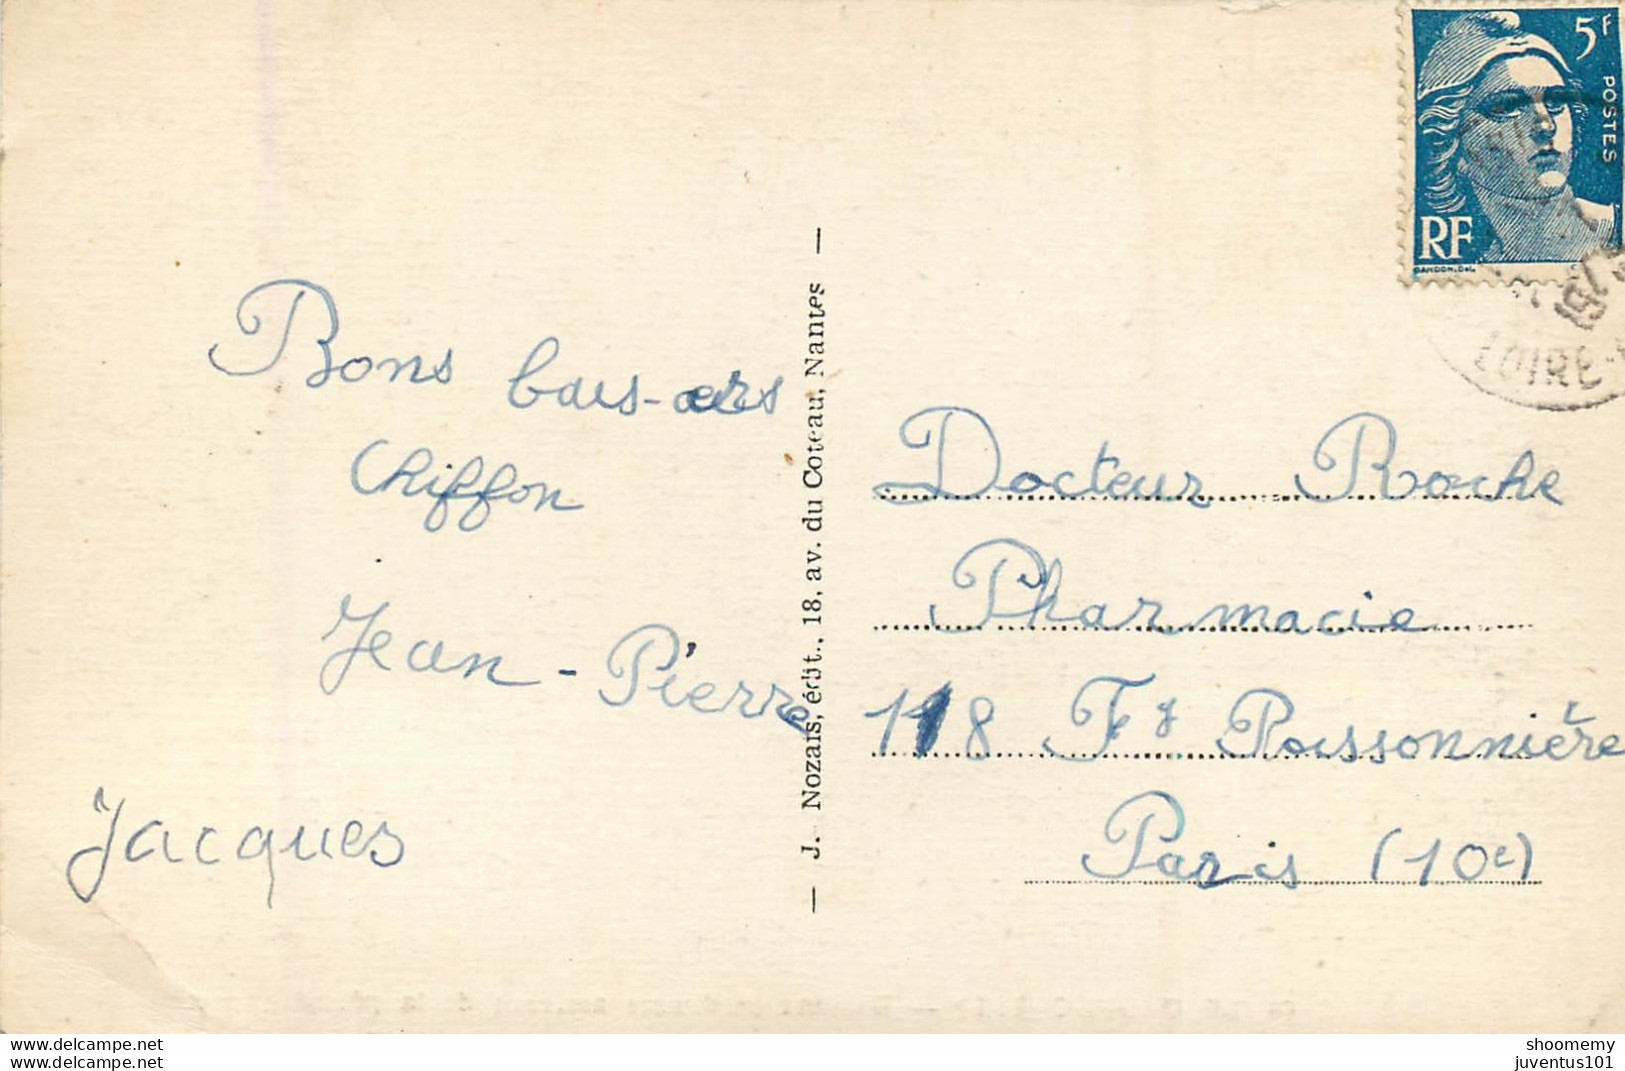 5F
POSTES
RF
GANDON.Del.
LOIRE-
Bons bais-ers
Chiffon
Jean-Pierre
Jacques
— J. Nozais, édit., 18, av. du Coteau, Nantes —
Docteur Roche
Pharmacie
118 Fg Poissonnière
Paris (10e)
www.delcampe.net
www.delcampe.net
shoomemy
juventus101